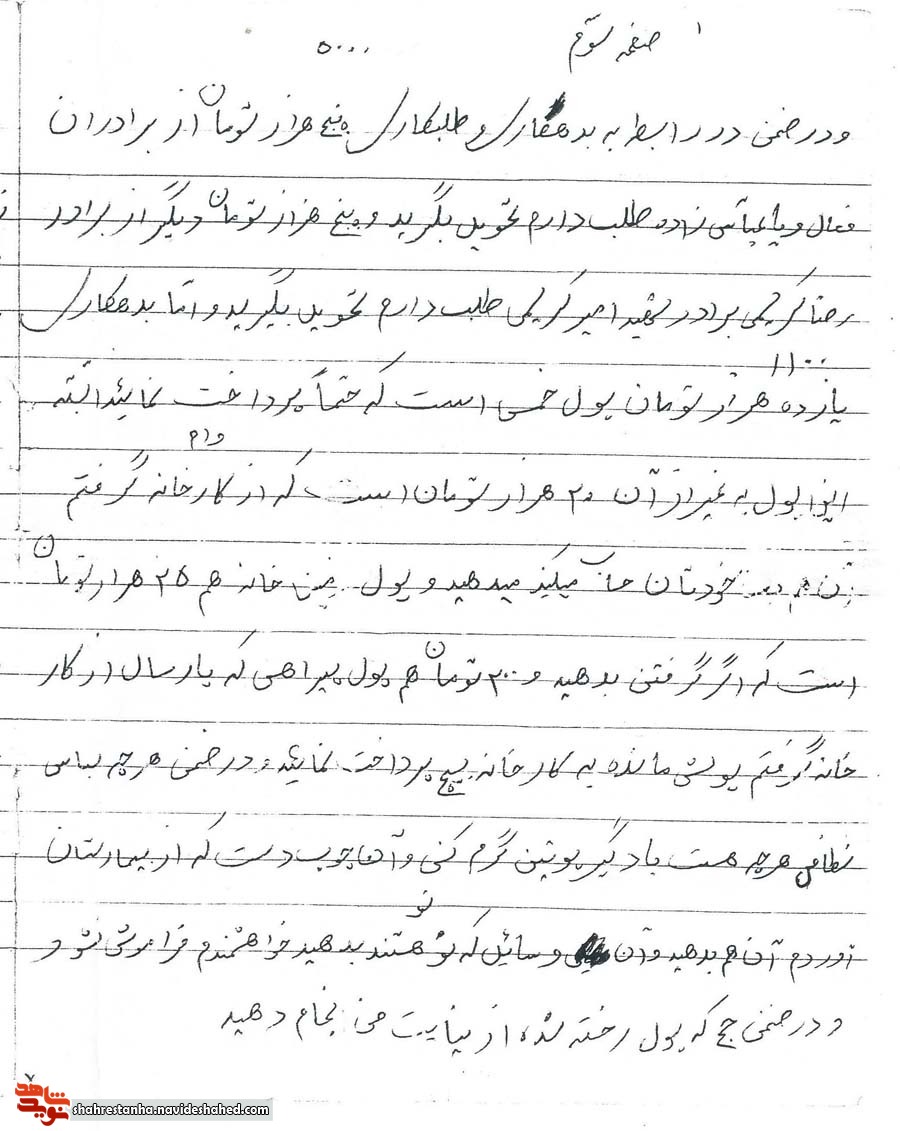 ۱ صفحه سوم ۵۰۰۰
و در ضمن در رابطه به بدهکاری و طلبکاری پنج هزار تومان از برادران
فعال و یا عباس زاده طلب دارم تحویل بگیرید و پنج هزار تومان دیگر از برادر
رضا کریمی برادر شهید امیر کریمی طلب دارم تحویل بگیرید و اما بدهکاری
۱۱۰۰۰
یازده هزار تومان پول خمس است که حتماً پرداخت نمائید البته
وام
این پول به غیر از آن ۲۰ هزار تومان است که از کارخانه گرفتم
آن هم خودتان میدهید و پول خانه هم ۲۵ هزار تومان
است که اگر گرفتن بدهید و ۳۰۰ تومان هم پول پیراهی که پارسال از کار
خانه گرفتم پولش مانده به کارخانه پرداخت نمائید و در ضمن هر چه لباس
نظامی هر چه هست بادگیر پوتین گرم کنی و آن چوب دست که از بیمارستان
نو
آوردم آن هم بدهید و آن وسائل که نو هستند بدهید خواهشمندم فراموش نشود
و در ضمن حج که پول رخته شده از نیابت من انجام دهید
۷
نوید شاهد
shahrestanha.navideshahed.com